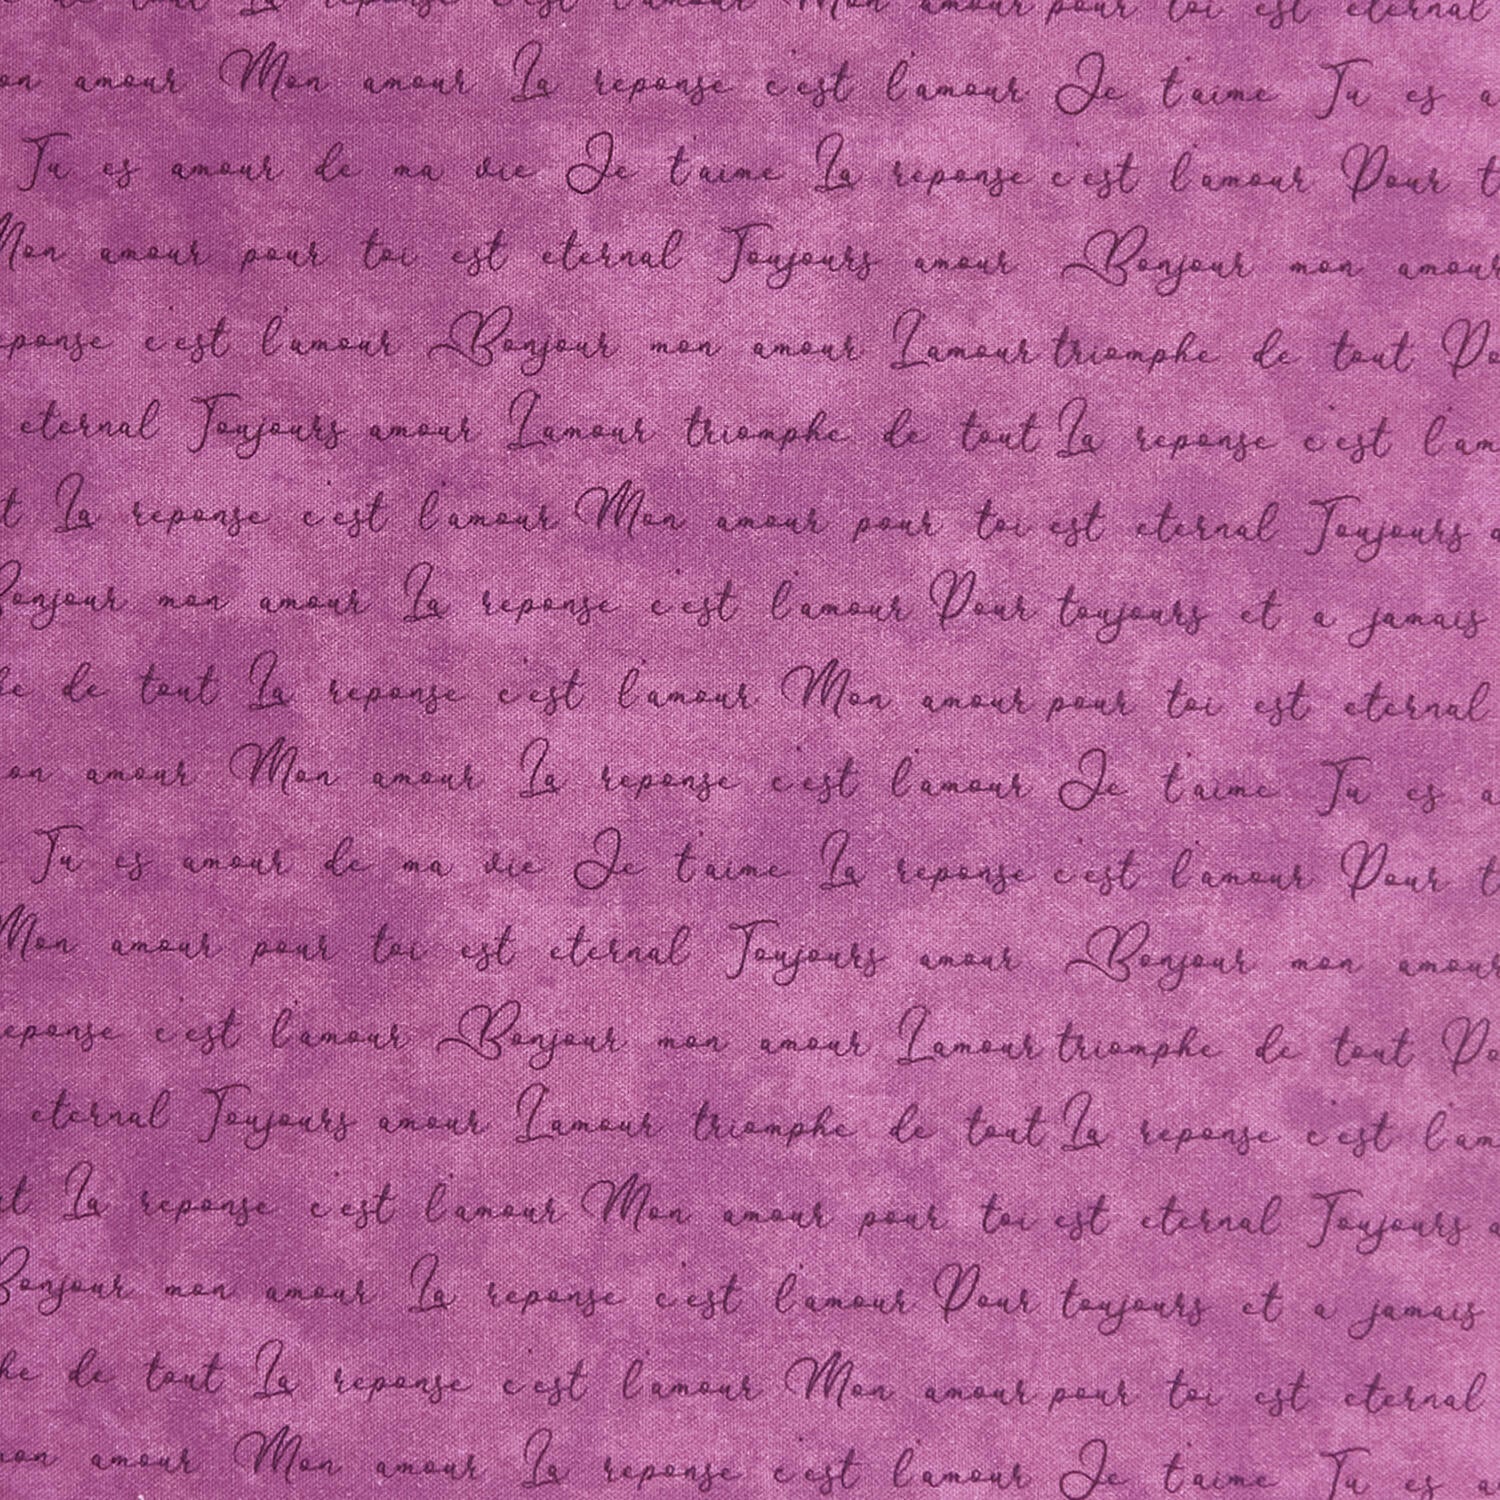 de tout La reponse c'est l'amour Mon amour pour toi est eternal
amour Mon amour La reponse c'est l'amour Je t'aime Tu es
Tu es amour de ma vie Je t'aime La reponse c'est l'amour Pour
Mon amour pour toi est eternal Toujours amour Bonjour mon amour
reponse c'est l'amour Bonjour mon amour Lamour triomphe de tout
eternal Toujours amour Lamour triomphe de tout La reponse c'est
La reponse c'est l'amour Mon amour pour toi est eternal Toujours
Bonjour mon amour La reponse c'est l'amour Pour toujours et a jamais
de tout La reponse c'est l'amour Mon amour pour toi est eternal
amour Mon amour La reponse c'est l'amour Je t'aime Tu es
Tu es amour de ma vie Je t'aime La reponse c'est l'amour Pour
Mon amour pour toi est eternal Toujours amour Bonjour mon amour
reponse c'est l'amour Bonjour mon amour Lamour triomphe de tout
eternal Toujours amour Lamour triomphe de tout La reponse c'est
La reponse c'est l'amour Mon amour pour toi est eternal Toujours
Bonjour mon amour La reponse c'est l'amour Pour toujours et a jamais
de tout La reponse c'est l'amour Mon amour pour toi est eternal
mon amour Mon amour La reponse c'est l'amour Je t'aime Tu es